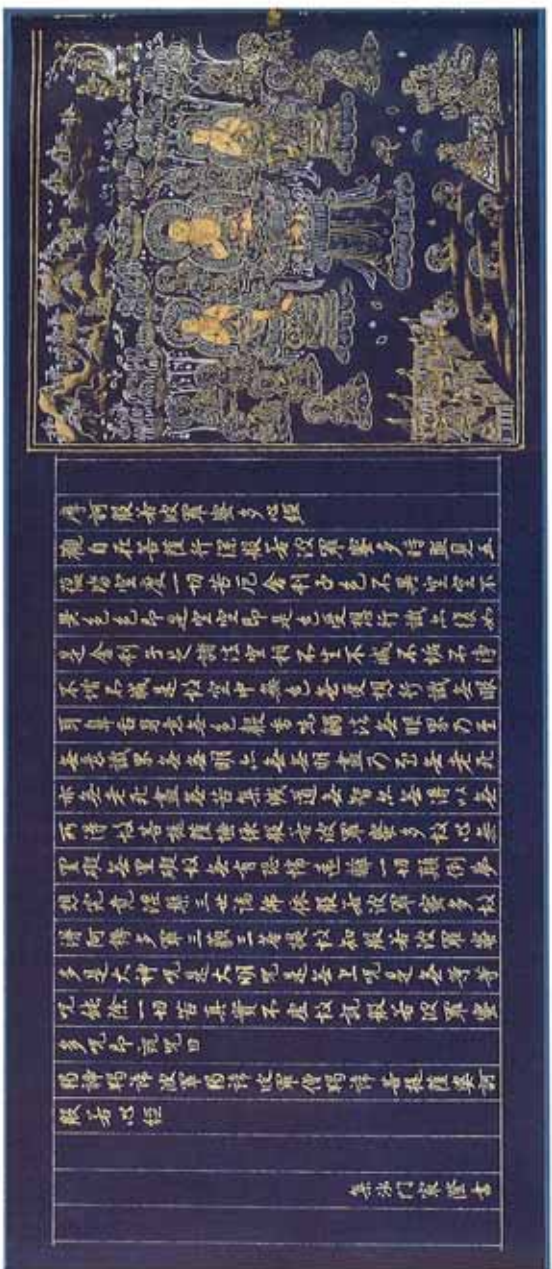 摩訶般若波羅蜜多心経
観自在菩薩行深般若波羅蜜多時照見五
蘊皆空度一切苦厄舎利子色不異空空不
異色色即是空空即是色受想行識亦復如
是舎利子是諸法空相不生不滅不垢不浄
不増不減是故空中無色無受想行識無眼
耳鼻舌身意無色聲香味觸法無眼界乃至
無意識界無無明亦無無明盡乃至無老死
亦無老死盡無苦集滅道無智亦無得以無
所得故菩提薩埵依般若波羅蜜多故心無
罣礙無罣礙故無有恐怖遠離一切顛倒夢
想究竟涅槃三世諸佛依般若波羅蜜多故
得阿耨多羅三藐三菩提故知般若波羅蜜
多是大神呪是大明呪是無上呪是無等等
呪能除一切苦真實不虚故説般若波羅蜜
多呪即説呪曰
羯諦羯諦波羅羯諦波羅僧羯諦菩提薩婆訶
般若心経
書